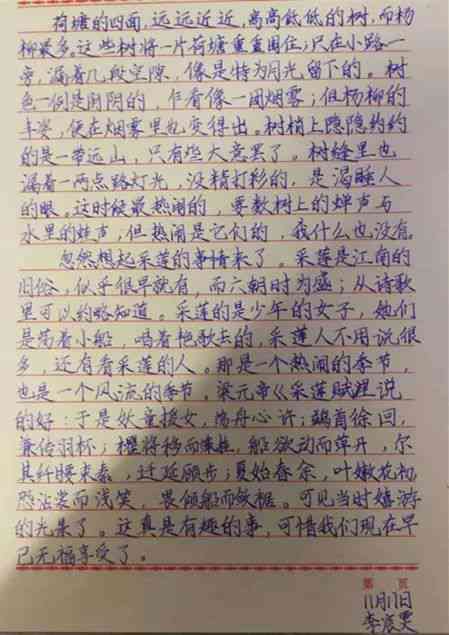 荷塘的四面,远远近近,高高低低的树,而杨
柳最多。这些树将一片荷塘重重围住;只在小路一
旁,漏着几段空隙,像是特为月光留下的。树
色一例是阴阴的,乍看像一团烟雾;但杨柳的
丰姿,便在烟雾里也变得出。树梢上隐隐约约
的是一带远山,只有些大意罢了。树缝里也
漏着一两点路灯光,没精打彩的,是渴睡人
的眼。这时候最热闹的,要数树上的蝉声与
水里的蛙声;但热闹是它们的,我什么也没有。
忽然想起采莲的事情来了。采莲是江南的
旧俗,似乎很早就有,而六朝时为盛;从诗歌
里可以约略知道。采莲的是少年的女子,她们
是荡着小船,唱着艳歌去的,采莲人不用说很
多,还有看采莲的人。那是一个热闹的季节,
也是一个风流的季节。梁元帝《采莲赋里说
的好:于是妖童媛女,荡舟心许;鹢首徐回,
兼传羽杯;櫂将移而藻挂,船欲动而萍开,尔
其纤腰束素,迁延顾步;夏始春余,叶嫩花初,
恐沾裳而浅笑,畏倾船而敛裾。可见当时嬉游
的光景了。这真是有趣的事,可惜我们现在早
已无福享受了。
第 页
11月11日
李辰雯